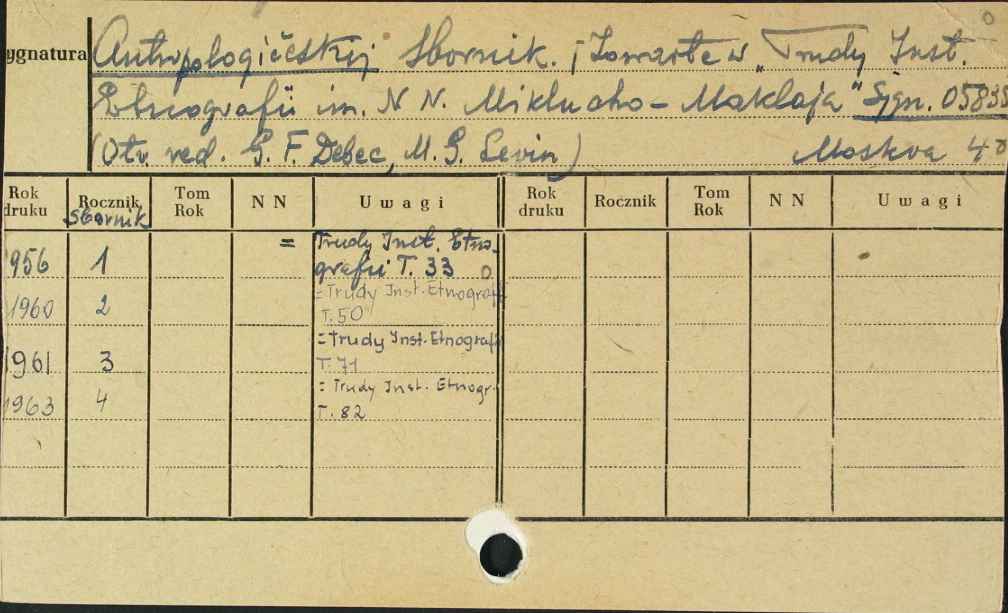 ygnatura Antropologičeskij Sbornik. [Zawarte w „Trudy Inst.
Etnografii im. N N. Miklucho-Maklaja" Sygn. 05835
(Otv. red. G. F. Debec, M. G. Levin) Moskva 4°
Rok druku Rocznik Sbornik Tom Rok N N Uwagi Rok druku Rocznik Tom Rok N N Uwagi
956 1 = Trudy Inst. Etno-
grafii T. 33
1960 2 = Trudy Inst. Etnograf
T. 50
1961 3 = Trudy Inst. Etnografi
T. 71
1963 4 = Trudy Inst. Etnogr.
T. 82